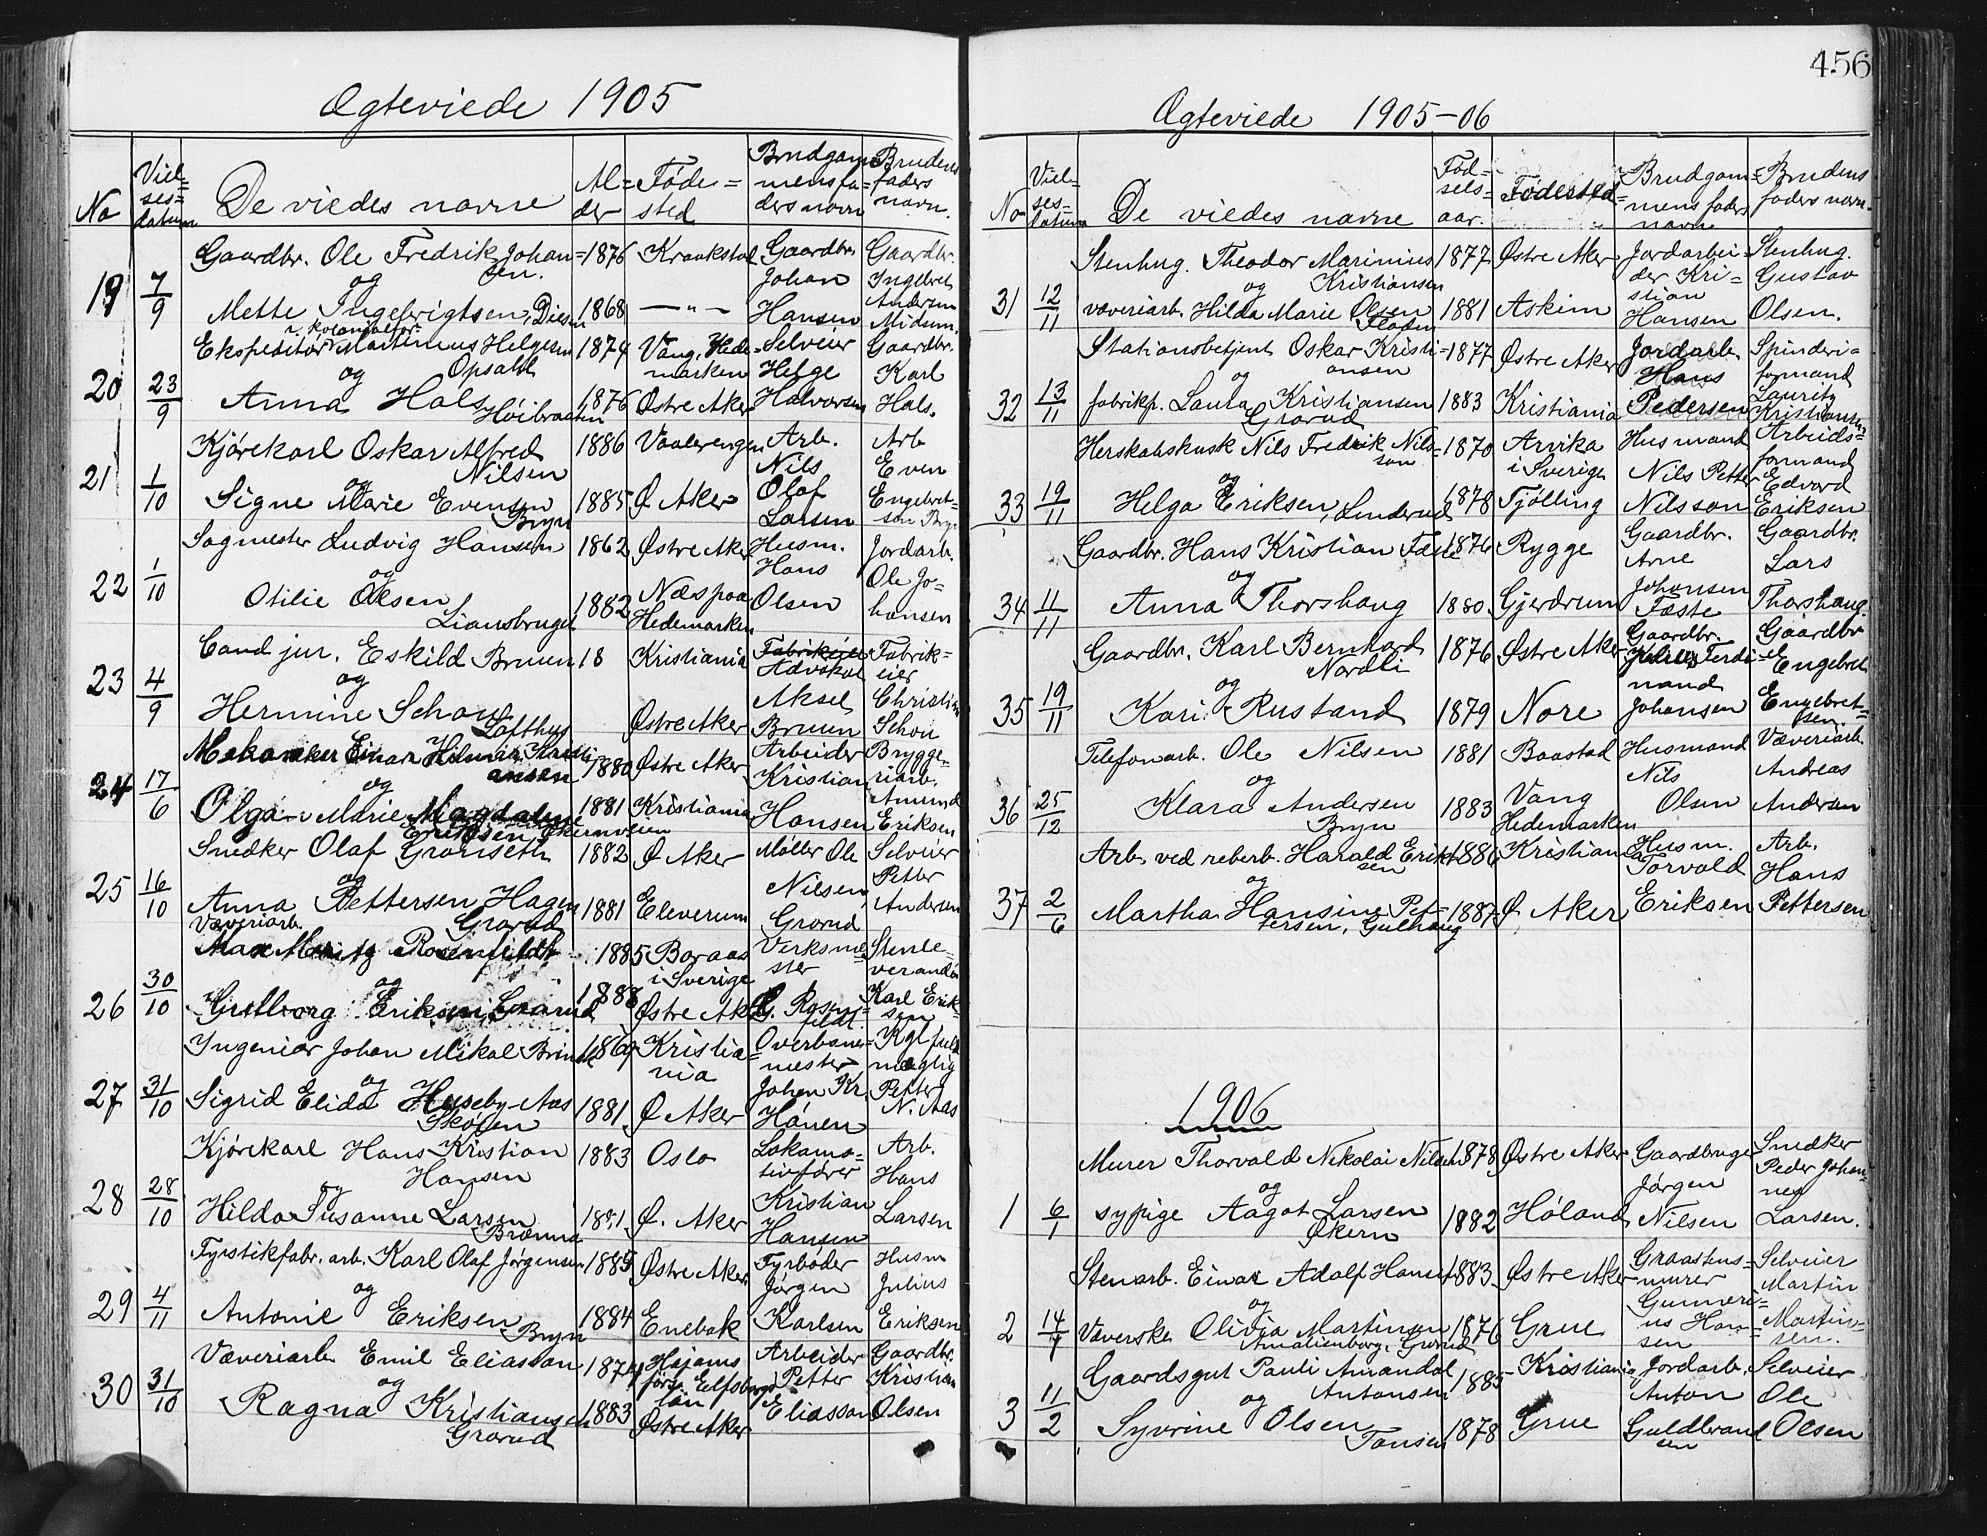 Ægteviede 1905
No
Viel=
ses=
datum
De viedes navne
Al=
der
Føde=
sted
Brudgom=
mens fa=
ders navn
Brudens
faders
navn.
19 7/9
Gaardbr. Ole Fredrik Johan=
sen.
og
Mette Ingebrigtsen, Diesen
1876 Kraakstad
1868 —"—
Gaardbr.
Johan
Hansen
Gaardbr.
Ingebret
Andersen
Midsem.
20 23/9
Ekspeditør i kolonialfor. Martinius Helgesen
Opsahl
og
Anna Hals
Høibraaten
1874 Vang, Hede=
marken
1876 Østre Aker
Selveier
Helge
Halvorsen
Gaardbr.
Karl
Hals.
21 1/10
Kjørekarl Oskar Alfred
Nilsen
og
Signe Marie Evensen
Bryn
1886 Vaalerengen
1885 Ø Aker
Arb.
Nils
Olaf
Larsen
Arb
Even
Engebret=
sen Bryn
22 1/10
Sagmester Ludvig Hansen
og
Otilie Olsen
Liansbruget
1862 Østre Aker
1882 Næs paa
Hedemarken
Husm.
Hans
Olsen
Jordarb.
Ole Jo=
hansen
23 4/9
Cand jur. Eskild Bruun
og
Hermine Schou
Lofthus
18 Kristiania
Østre Aker
Fabrikeier
Advokat
Aksel
Bruun
Fabrik=
eier
Christian
Schou
24 17/6
Mekaniker Einar Hilmar Kristi=
ansen
og
Olga Marie Magdalene
Eriksen, Økernveien
1880 Østre Aker
1881 Kristiania
Arbeider
Kristian
Hansen
Brygge=
riarb.
Amund
Eriksen
25 16/10
Snedker Olaf Grønseth
og
Anna Pettersen Hagen
Grorud
1882 Ø Aker
1881 Elverum
Møller Ole
Nilsen,
Grorud
Selveier
Petter
Andersen
26 30/10
Væveriarb.
Max Moritz Rosenfeldt
og
Gudborg Eriksen, Grorud
1885 Boraas
i Sverige
1888 Østre Aker
Verksme=
ster
G. Rosen=
feldt
Stenle=
verandør
Karl Erik=
sen
27 31/10
Ingeniør Johan Mikal
og
Sigrid Elida Huseby-Aas
Skøien
1869 Kristia=
nia
1881 Ø Aker
Overbane=
mester
Johan Kr.
Hánen
Kgl fuld
mægtig
Petter
N. Aas
28 28/10
Kjørekarl Hans Kristian
Hansen
og
Hilda Susanne Larsen
Brænna
1883 Oslo
Ø. Aker
Lokomo=
tivfører
Kristian
Hansen
Arb.
Hans
Larsen
29 4/11
Fyrstikfabr. arb. Karl Olaf Jørgensen
og
Antonie Eriksen
Bryn
1885 Østre Aker
1884 Enebak
Fyrbøder
Jørgen
Karlsen
Husm
Julius
Eriksen
30 31/10
Væveriarb Emil Eliasson
og
Ragna Kristiansen
Grorud
1874
1883 Østre Aker
Arbeider
Petter
Eliasson
Gaardbr.
Kristian
Olsen
456
Ægteviede 1905-06
No
Viel=
ses=
datum
De viedes navne
Fød=
sels=
aar.
Fødested
Brudgom=
mens faders
navn
Brudens
faders navn.
31 12/11
Stenhug. Theodor Marinius
Kristiansen
og
væveriarb. Hilda Marie Olsen
Flaten
1877 Østre Aker
1881 Askim
Jordarbei=
der Kri=
stian
Hansen
Stenhug.
Gustav
Olsen.
32 13/11
Stationsbetjent Oskar Kristi=
ansen
og
fabrikp. Laura Kristiansen
Grorud
1877 Østre Aker
1883 Kristiania
Jordarb.
Hans
Pedersen
Spinderi=
formand
Lauritz
Kristiansen
33 19/11
Herskabskusk Nils Fredrik Nils=
son
og
Helga Eriksen, Linderud
1870 Arvika
i Sverige
1878 Tjølling
Husmand
Nils Petter
Nilsson
Arbeids=
formand
Edvard
Eriksen
34 11/11
Gaardbr. Hans Kristian Fæste
og
Anna Thorshaug
1876 Rygge
1880 Gjerdrum
Gaardbr.
Arne
Johansen
Fæste
Gaardbr.
Lars
Thorshaug.
35 19/11
Gaardbr. Karl Bernhard
Nordli
og
Kari Rustand
1876 Østre Aker
1879 Nore
Gaardbr.
Julius Ferdi=
nand
Johansen
Gaardbr
Engebret
Engebret=
sen.
36 25/12
Telefonarb. Ole Nilsen
og
Klara Andersen
Bryn
1881 Baastad
1883 Vang
Hedemarken
Husmand
Nils
Olsen
Væveriarb.
Andreas
Andersen
37 2/6
Arb. ved reberb. Harald Erik=
sen
og
Martha Hansine Pet=
tersen, Gulhaug
1886 Kristiania
1887 Ø Aker
Husm.
Torvald
Eriksen
Arb.
Hans
Pettersen
1906
1 6/1
Murer Thorvald Nikolai Nilsen
og
sypige Aagot Larsen
Økern
1878 Østre Aker
1882 Høland
Gaardbruger
Jørgen
Nilsen
Snedker
Peder Johan=
nes
Larsen.
2 14/4
Stenarb. Einar Adolf Hansen
og
Væverske Olivia Martinsen
Amalienborg, Grorud
1883 Østre Aker
1876 Grue
Graastens=
murer
Gunneri=
us Han=
sen
Selveier
Martin
Martin=
sen.
3 11/2
Gaardsgut Pauli Amandal
Antonsen
og
Syvrine Olsen
Tonsen
1885 Kristiania
1878 Grue
Jordarb.
Anton
Guldbrand
sen
Selveier
Ole
Olsen